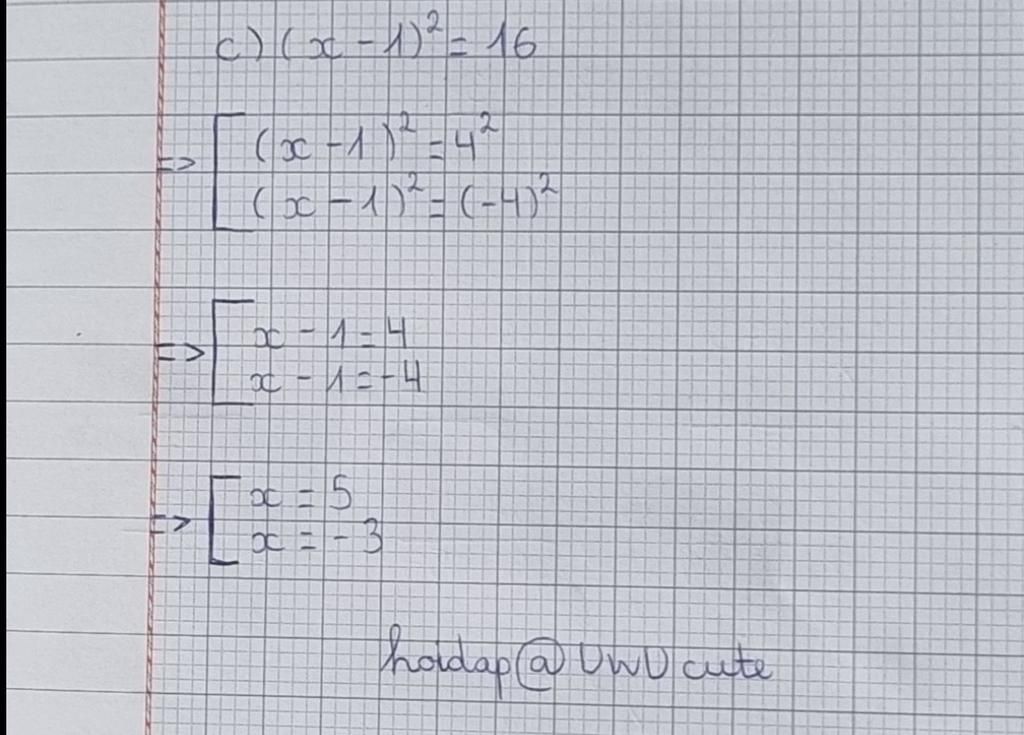 c) (x - 1)² = 16
=> [ (x - 1)² = 4²
(x - 1)² = (-4)²
=> [ x - 1 = 4
x - 1 = -4
=> [ x = 5
x = -3
hoidap@UwU cute